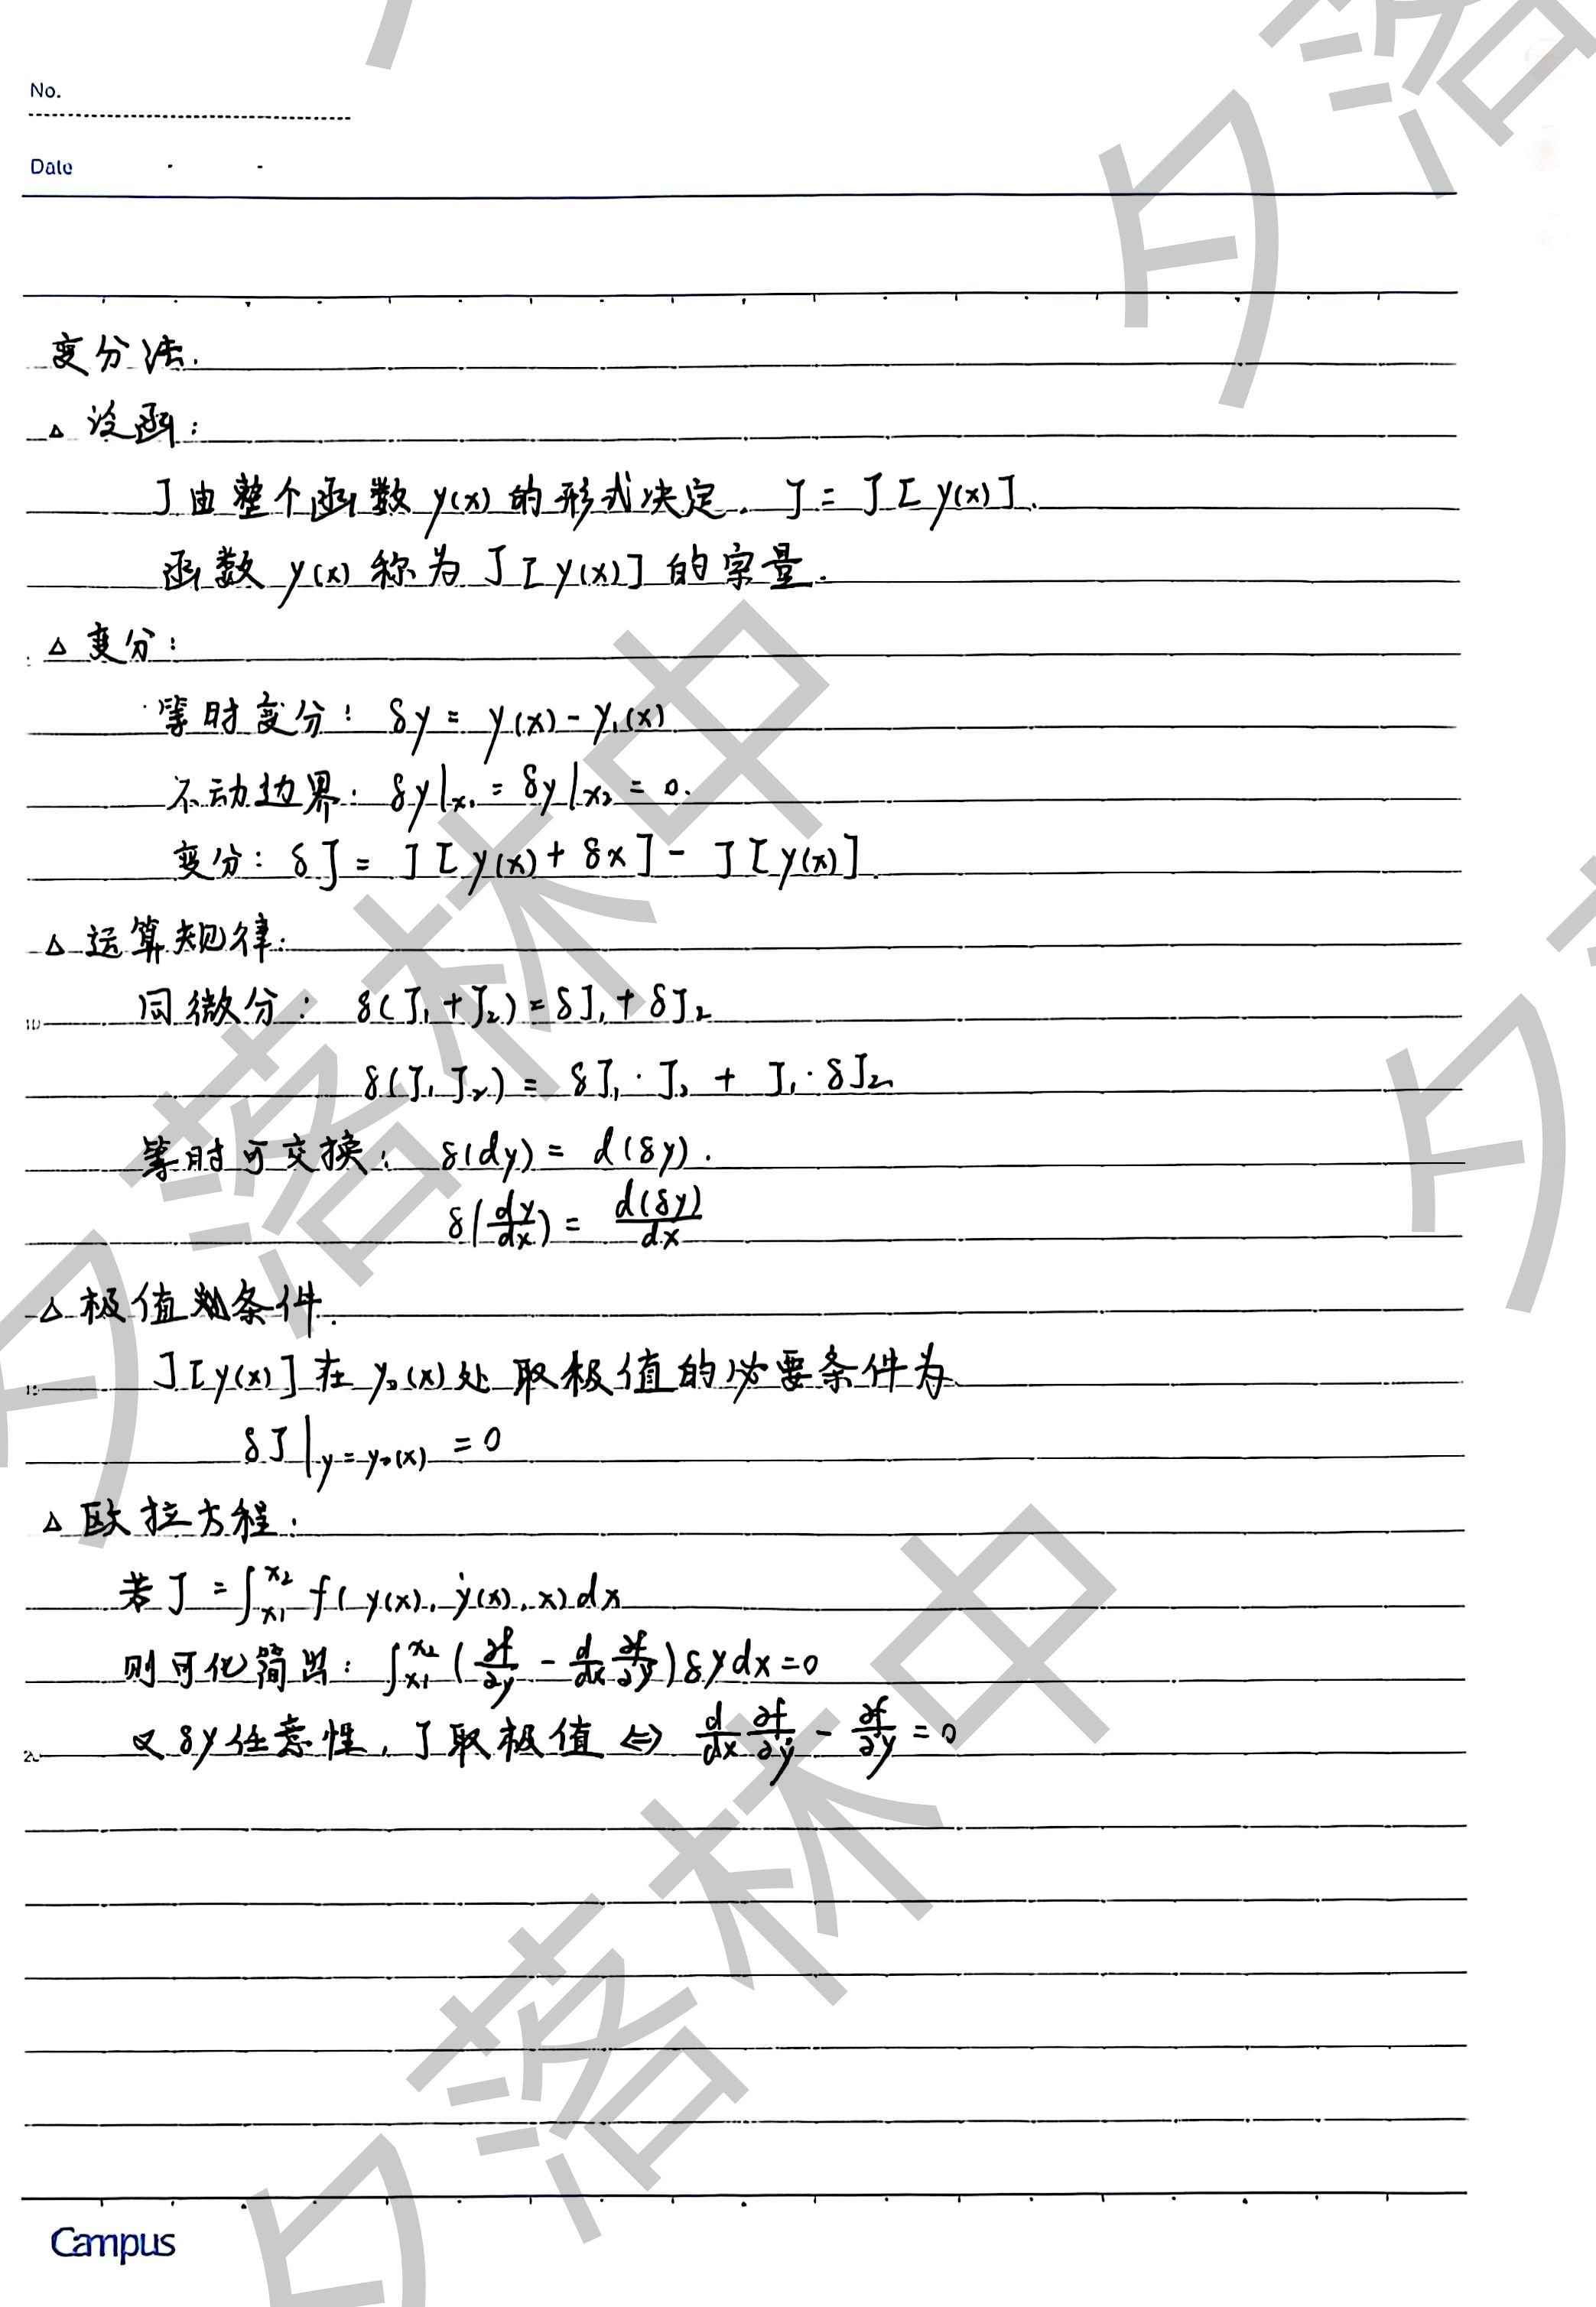 No.
Date
变分法.
△ 泛函:
J由整个函数 y(x) 的形式决定. J = J[y(x)].
函数 y(x) 称为 J[y(x)] 的宗量.
△ 变分:
等时变分: δy = y(x) - y₁(x)
不动边界: δy|x₁ = δy|x₂ = 0.
变分: δJ = J[y(x) + δx] - J[y(x)].
△ 运算规律:
同微分: δ(J₁ + J₂) = δJ₁ + δJ₂
10
δ(J₁J₂) = δJ₁·J₂ + J₁·δJ₂
等时可交换: δ(dy) = d(δy).
δ(dy/dx) = d(δy)/dx
△ 极值条件.
J[y(x)] 在 y₀(x) 处取极值的必要条件为
15
δJ|y=y₀(x) = 0
△ 欧拉方程:
若 J = ∫x₁x₂ f(y(x), ẏ(x), x)dx
则可化简出: ∫x₁x₂ (∂f/∂y - d/dx ∂f/∂ẏ)δy dx = 0
又δy任意性, J取极值 ⇔ d/dx ∂f/∂ẏ - ∂f/∂y = 0
20
Campus
夕落林中
夕落林中